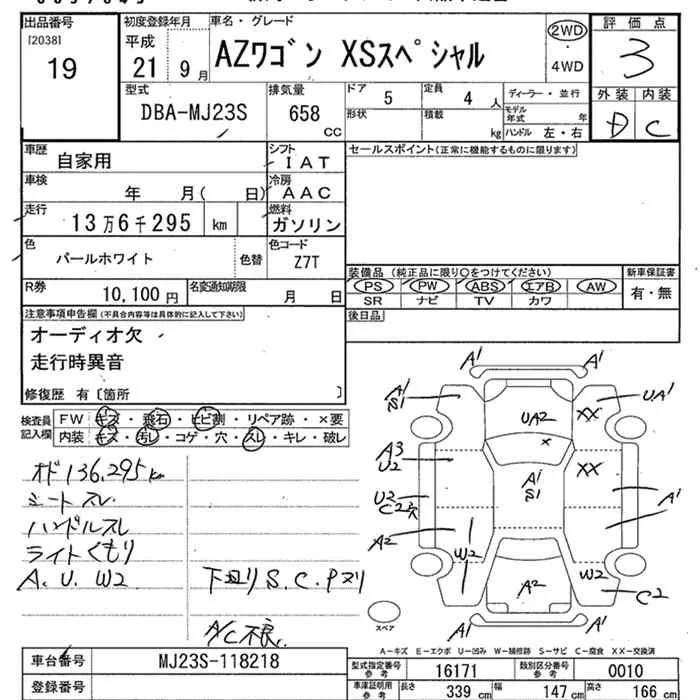 出品番号 初度登録年月 車名・グレード 評価点
[2038]
19 平成 21 9月 AZワゴン XSスペシャル 2WD・4WD 3
型式 排気量 ドア 定員 ディーラー・並行 外装 内装
DBA-MJ23S 658 CC 5 4人 D C
形状 積載 kg モデル年式 年
ハンドル 左・右
車歴 自家用 シフト IAT セールスポイント(正常に機能するものに限ります)
車検 年 月( 日) 冷房 AAC
走行 13万6千295 km 燃料 ガソリン
色 パールホワイト 色替 色コード Z7T
装備品(純正品に限り○をつけてください) 新車保証書
R券 10,100円 名変通知期限 月 日 PS PW ABS エアB AW 有・無
SR ナビ TV カワ
注意事項申告欄(不具合内容等は具体的に記入して下さい) 後日品
オーディオ欠
走行時異音
修復歴 有〔箇所 〕
検査員記入欄 FW キズ・飛石・ヒビ割・リペア跡・×要
内装 キズ・汚レ・コゲ・穴・スレ・キレ・破レ
オド136,295km
シートスレ
ハンドルスレ
ライトくもり
A.U.W2 下廻りS.C.Pヌリ
A/C不良
A1 A1
A1 S1 UA1
UA2 XX
×
A3 U2 A1 S1 XX
U3 C2穴 A1
A2
W2 W2
A2 C2
A1 A1
スペア
A-キズ E-エクボ U-凹み W-補修跡 S-サビ C-腐食 XX-交換済
車台番号 MJ23S-118218 型式指定番号 参考 16171 類別区分番号 参考 0010
登録番号 車庫証明用 参考 長さ 339cm 幅 147cm 高さ 166cm